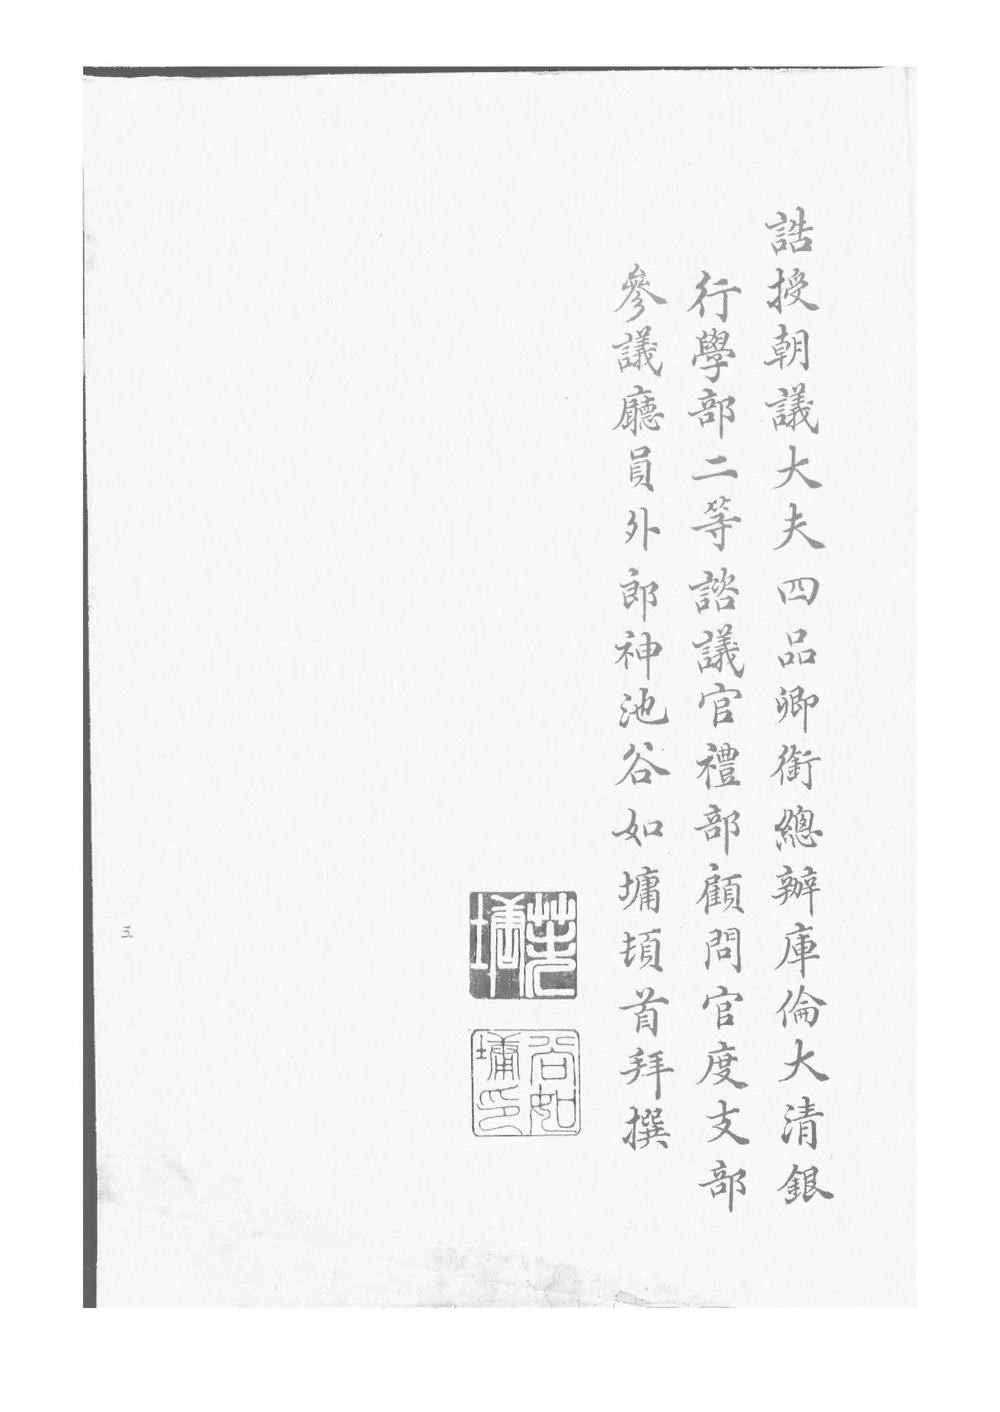 誥授朝議大夫四品卿銜總辦庫倫大清銀
行學部二等諮議官禮部顧問官度支部
參議廳員外郎神池谷如墉頓首拜撰
芝墉
谷如墉印
三